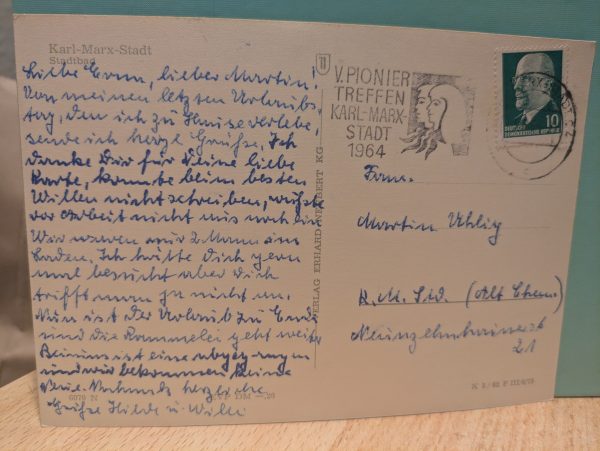 Karl-Marx-Stadt
Stadtbad
Liebe Erna, lieber Martin!
Von meinen letzten Urlaubs-
tag, den ich zu Hause verlebe,
sende ich herzl. Grüße. Ich
danke Dir für Deine liebe
Karte, konnte beim besten
Willen nicht schreiben, wußte
vor Arbeit nicht aus noch ein
Wir waren nur 2 Mann im
Laden. Ich hätte Dich gern
mal besucht aber Dich
trifft man ja nicht an.
Nun ist der Urlaub zu Ende
und die Rammelei geht weiter
Bei uns ist eine abgegangen
und wir bekommen keine
Neue. Nochmals herzliche
Grüße Hilde u. Willi
6079 N
EVP DM -,20
VERLAG ERHARD NEUBERT KG
V. PIONIER
TREFFEN
KARL-MARX-
STADT
1964
10
DEUTSCHE
DEMOKRATISCHE REPUBLIK
Fam.
Martin Uhlig
K. M. Std. (Alt Chem.)
21